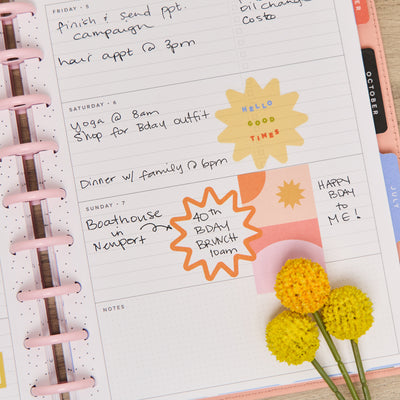 FRIDAY · 5
finish & send ppt.
campaign
hair appt @ 3pm
oil change
Costo
SATURDAY · 6
Yoga @ 8am
Shop for Bday outfit
HELLO
GOOD
TIMES
Dinner w/ family @ 6pm
SUNDAY · 7
Boathouse
in
Newport
40th
BDAY
BRUNCH
10am
HAPPY
BDAY
to
ME!
NOTES
OCTOBER
JULY